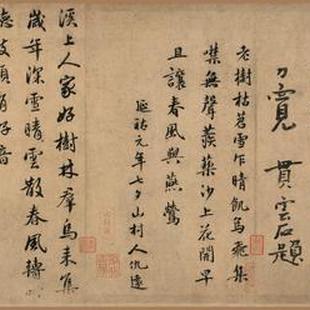 貫雲石題
老樹枯苕雪乍晴飢烏飛集
噤無聲蒺藜沙上花開早
且讓春風與燕鶯
延祐元年七夕山村人仇遠
溪上人家好樹林群烏來集
歲年深雪晴雲散春風轉
好音